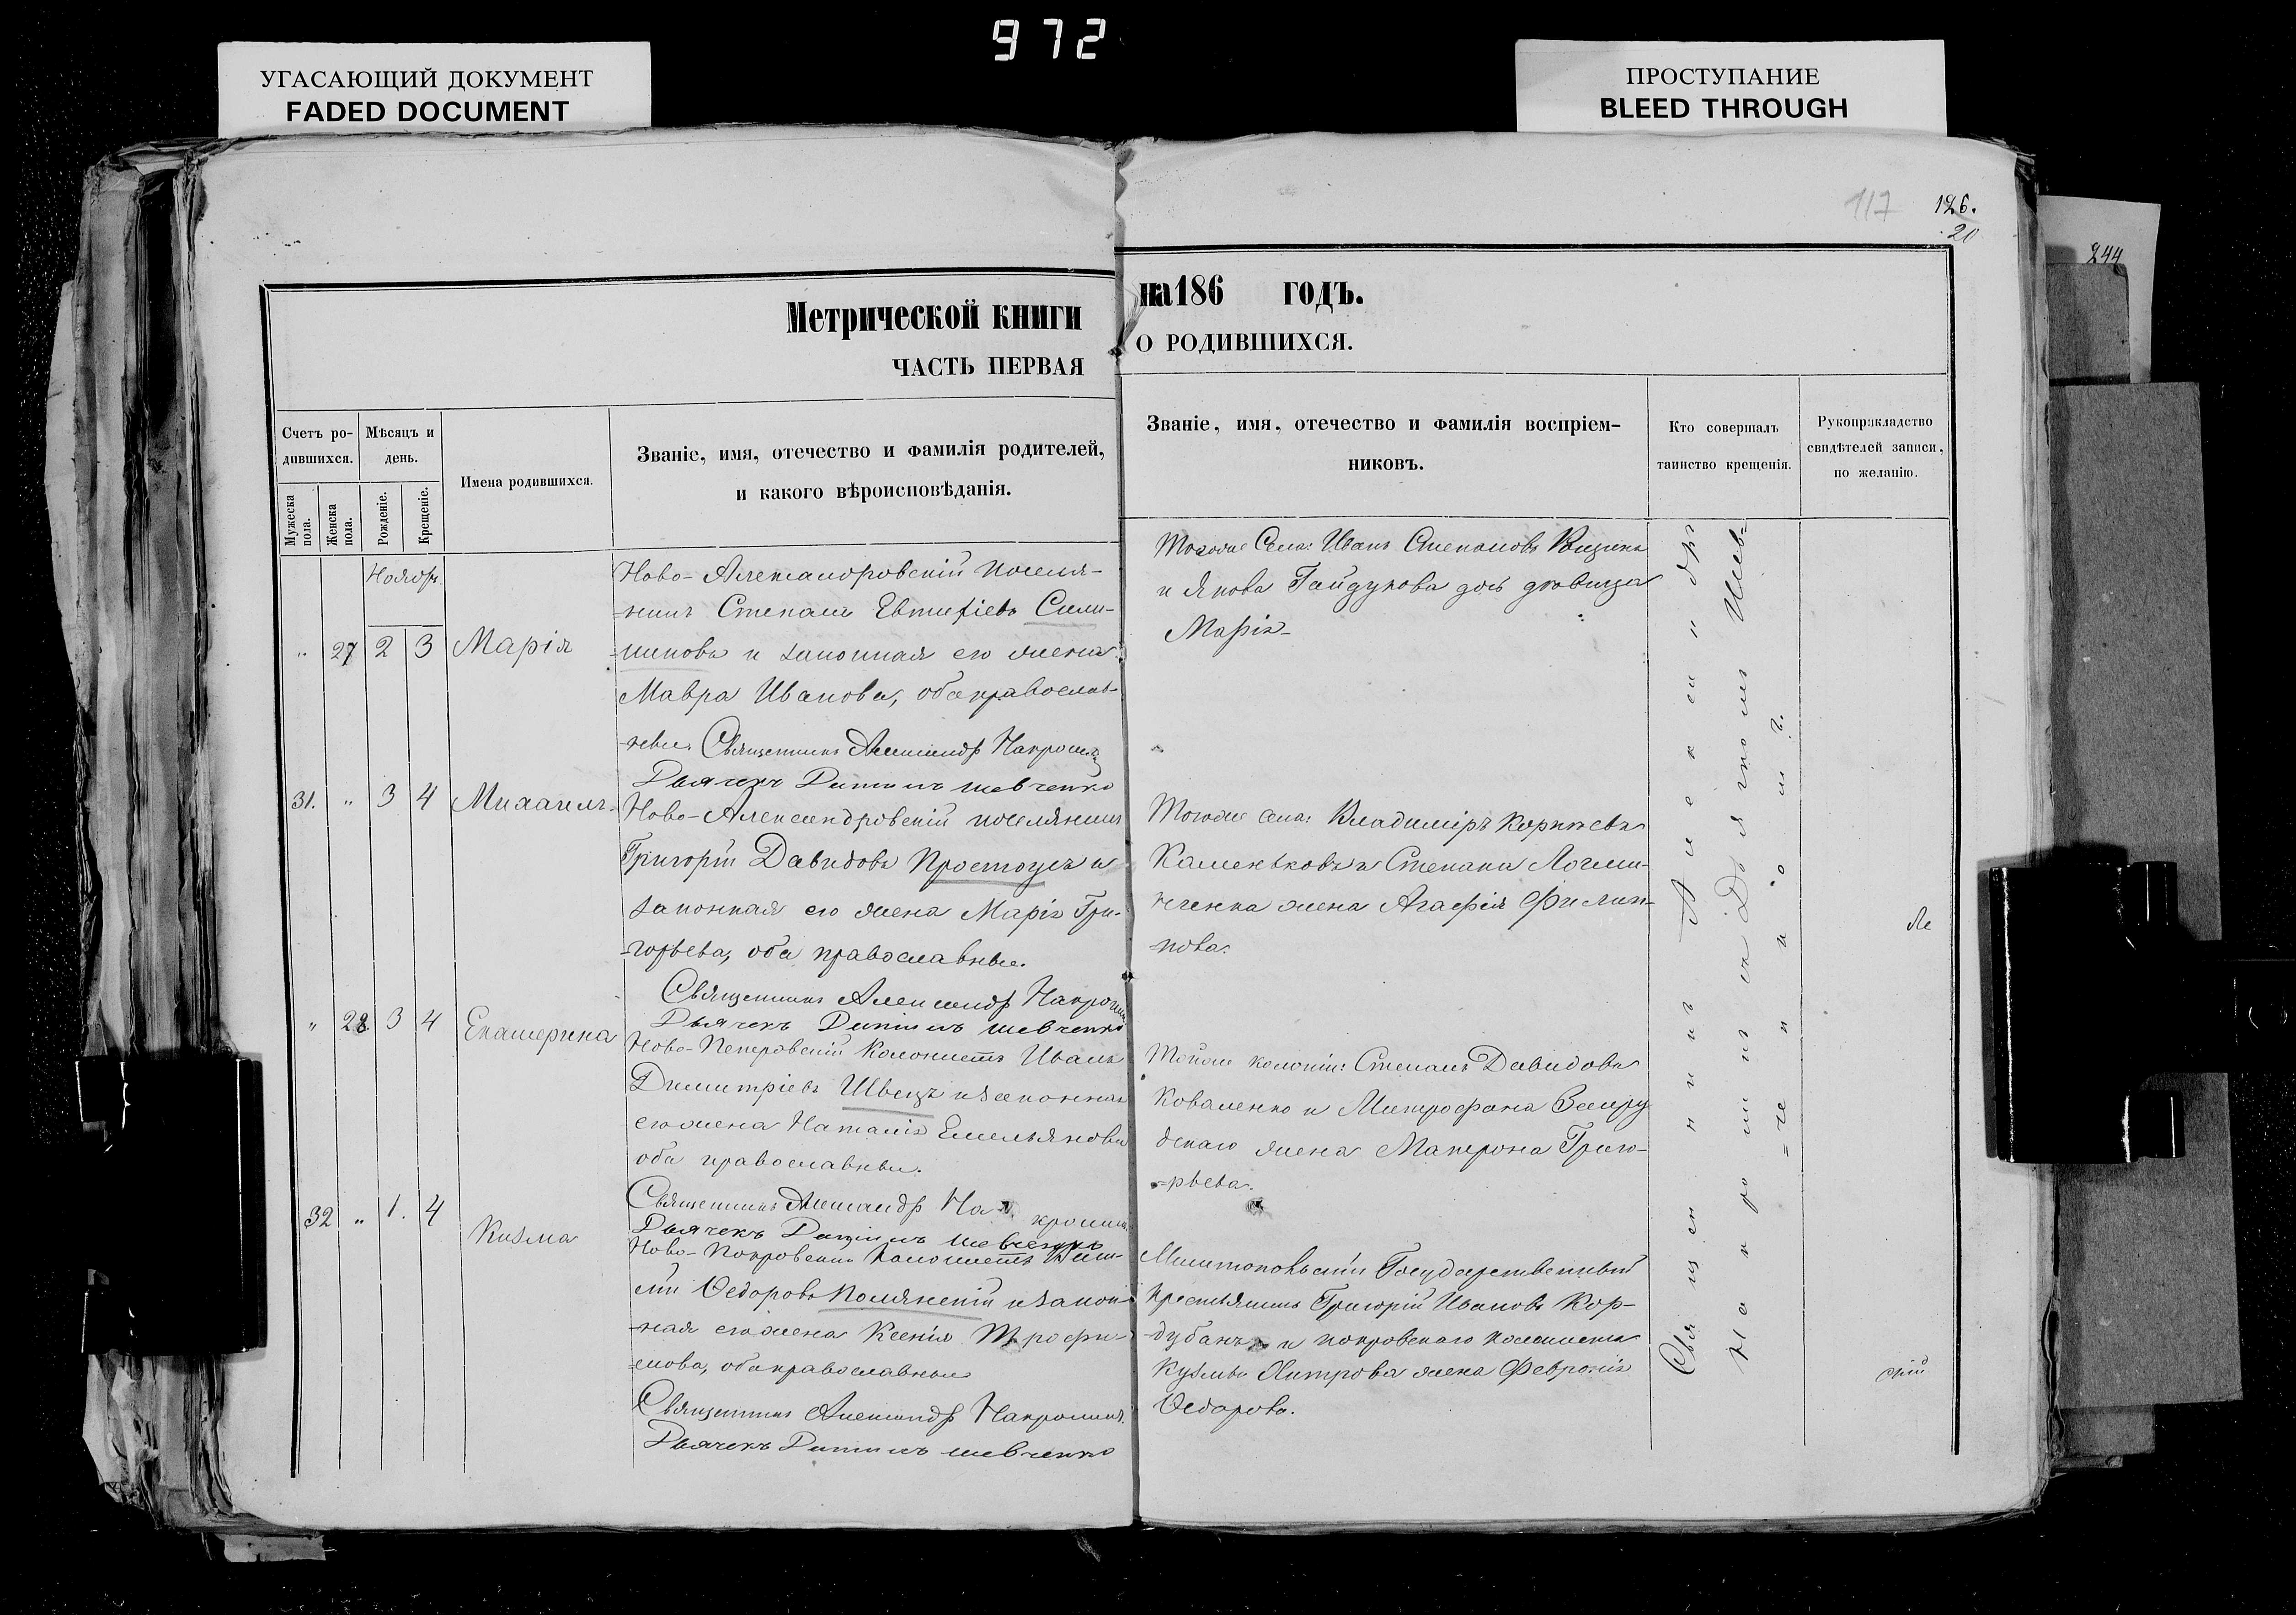 972
УГАСАЮЩИЙ ДОКУМЕНТ
FADED DOCUMENT
ПРОСТУПАНИЕ
BLEED THROUGH
117
126.
20
244
Метрической книги
на 186 годъ.
ЧАСТЬ ПЕРВАЯ
О РОДИВШИХСЯ.
Счетъ ро-
дившихся.
Мужеска
пола.
Женска
пола.
Мѣсяцъ и
день.
Рожденіе.
Крещеніе.
Имена родившихся.
Званіе, имя, отечество и фамилія родителей,
и какого вѣроисповѣданія.
Званіе, имя, отечество и фамилія воспріем-
никовъ.
Кто совершалъ
таинство крещенія.
Рукоприкладство
свидѣтелей записи,
по желанію.
Ноябрь
" 27 2 3 Марія
Ново-Александровскій поселя-
-нинъ Степанъ Евтифіевъ
и законная его жена
Мавра Иванова, оба православ-
-ные. Священникъ Александръ Накрошинъ
Дьячекъ Даніилъ Шевченко
Тогоже Села: Иванъ Степановъ
и Якова Гайдукова дочь дѣвица
Марія
31. " 3 4 Михаилъ
Ново-Александровскій поселянинъ
Григорій Давидовъ Простоусъ и
законная его жена Марія Гри-
-горьева, оба православные.
Священникъ Александръ Накрошинъ
Дьячекъ Даніилъ Шевченко
Тогоже села: Владиміръ Корнѣевъ
Каменьковъ и Степана
жена Агафія Филип-
-пова.
" 28 3 4 Екатерина
Колонистъ Иванъ
Димитріевъ Швецъ и законная
его жена Наталія Емельянова
оба православные.
Священникъ Александръ Накрошинъ
Дьячекъ Даніилъ Шевченко
Тойже колоніи: Степанъ Давидовъ
Коваленко и Митрофана
жена Матрона Григо-
-рьева.
32 " 1. 4 Козма
Ново-Покровскій колонистъ
Ѳедоровъ и закон-
-ная его жена Ксенія Трофи-
-мова, оба православные
Священникъ Александръ Накрошинъ.
Дьячекъ Даніилъ Шевченко
Мелитопольскій Государственный
крестьянинъ Григорій Ивановъ Кор-
-дубанъ и покровскаго колониста
Кузьмы Хитрова жена Февронія
Ѳедорова.
Священникъ Александръ
Накрошинъ съ Дьячкомъ Шев-
=ченкомъ.